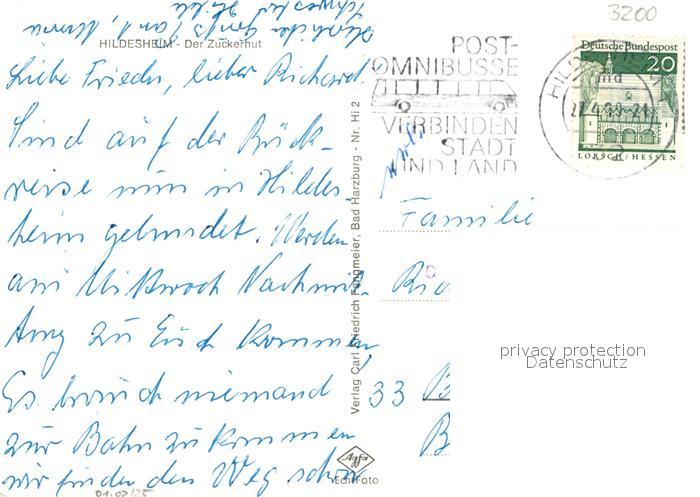 3200
HILDESHEIM - Der Zuckerhut
POST-
OMNIBUSSE
VERBINDEN
STADT
UND LAND
Deutsche Bundespost
20
LORSCH/HESSEN
Liebe Frieda, lieber Richard.
Sind auf der Rück-
reise nun in Hildes-
heim gelandet. Werden
am Mittwoch Nachmit-
tag zu Euch kommen,
Es brauch niemand
zur Bahn zu kommen
wir finden den Weg schon
Herzliche Grüße
Verlag Carl Friedrich Fangmeier, Bad Harzburg - Nr. Hi 2
Familie
33
privacy protection
Datenschutz
Agfa
Echt Foto
01.02/25